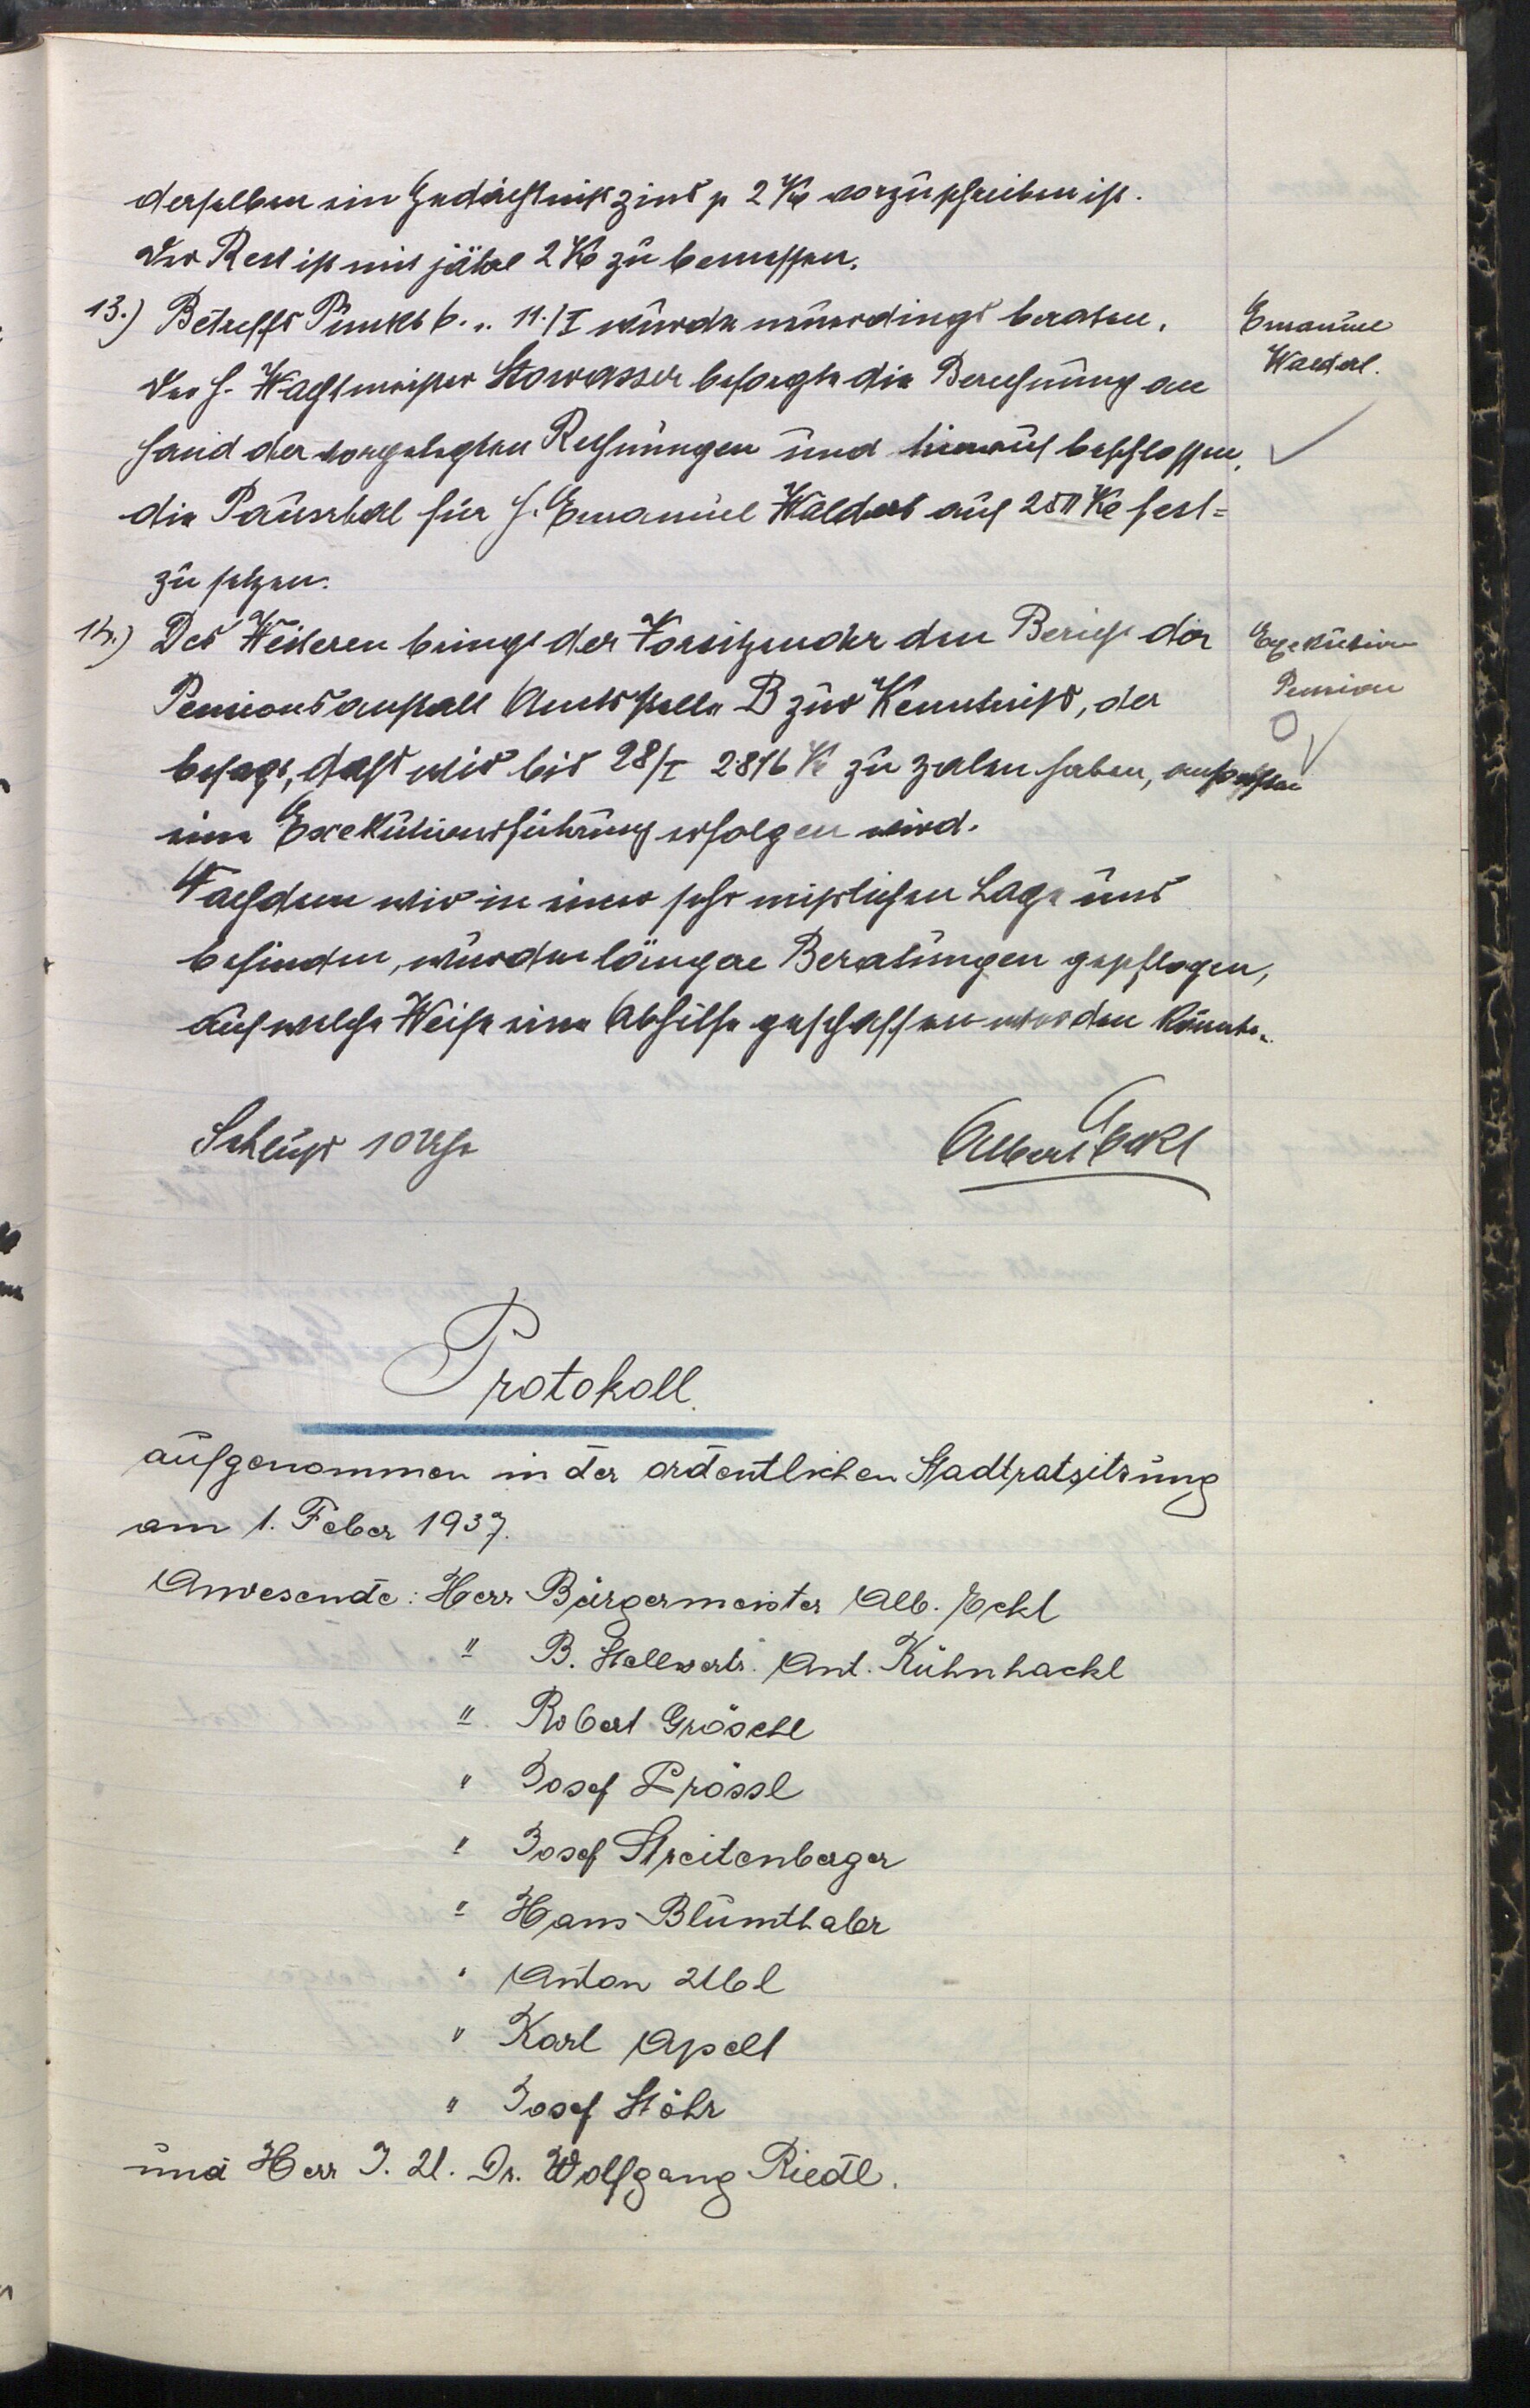 derselben ein Gedächtniszins p 2 Kč vorzuschreiben ist.
Der Rest ist mit jährl 2 Kč zu bemessen.
13.) Betreffs Punkt 6. v. 11./I wurde neuerdings beraten.
Emanuel
Walderl.
Der H. Wachtmeister Stowasser besorgte die Berechnung an
Hand der vorgelegten Rechnungen und hierauf beschlossen,
die Pauschal für H. Emanuel Walderl auf 250 Kč fest-
zu setzen.
14.) Des Weiteren bringt der Vorsitzender den Bericht der
Exekution
Pension
Pensionsanstalt Amtsstelle B zur Kenntniss, der
besagt, dass wir bis 28/I 2816 Kč zu zalen haben, ansonsten
eine Exekutionsführung erfolgen wird.
Nachdem wir in einer sehr mislichen Lage uns
befinden, wurden längere Beratungen gepflogen,
auf welche Weise eine Abhilfe geschaffen werden könnte.
Schluss 10 Uhr
Albert Eckl
Protokoll.
aufgenommen in der ordentlichen Stadtratsitzung
am 1. Feber 1937.
Anwesende: Herr Bürgermeister Alb. Eckl
" B. Stellvertr. Ant. Kühnhackl
" Robert Gröschl
" Josef Prössl
" Josef Streitenberger
" Hans Blumthaler
" Anton Ubl
" Karl Apelt
" Josef Stöhr
und Herr J. U. Dr. Wolfgang Riedl.